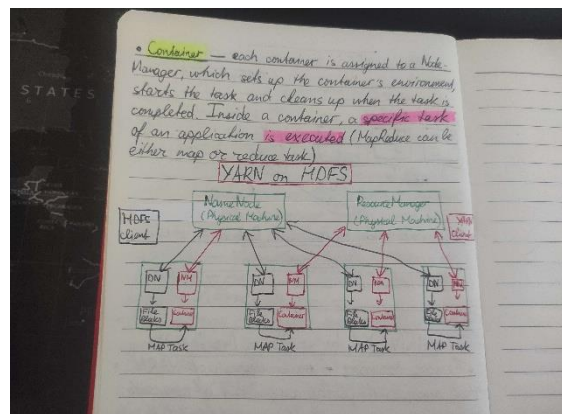 STATES
• Container — each container is assigned to a Node
Manager, which sets up the container's environment,
starts the task and cleans up when the task is
completed. Inside a container, a specific task
of an application is executed (MapReduce can be
either map or reduce task)
YARN on HDFS
NameNode
(Physical Machine)
ResourceManager
(Physical Machine)
HDFS
client
YARN
client
DN NM DN NM DN NM DN NM
File
Blocks
Container
File
Blocks
Container
File
Blocks
Container
File
Container
MAP Task MAP Task MAP Task MAP Task